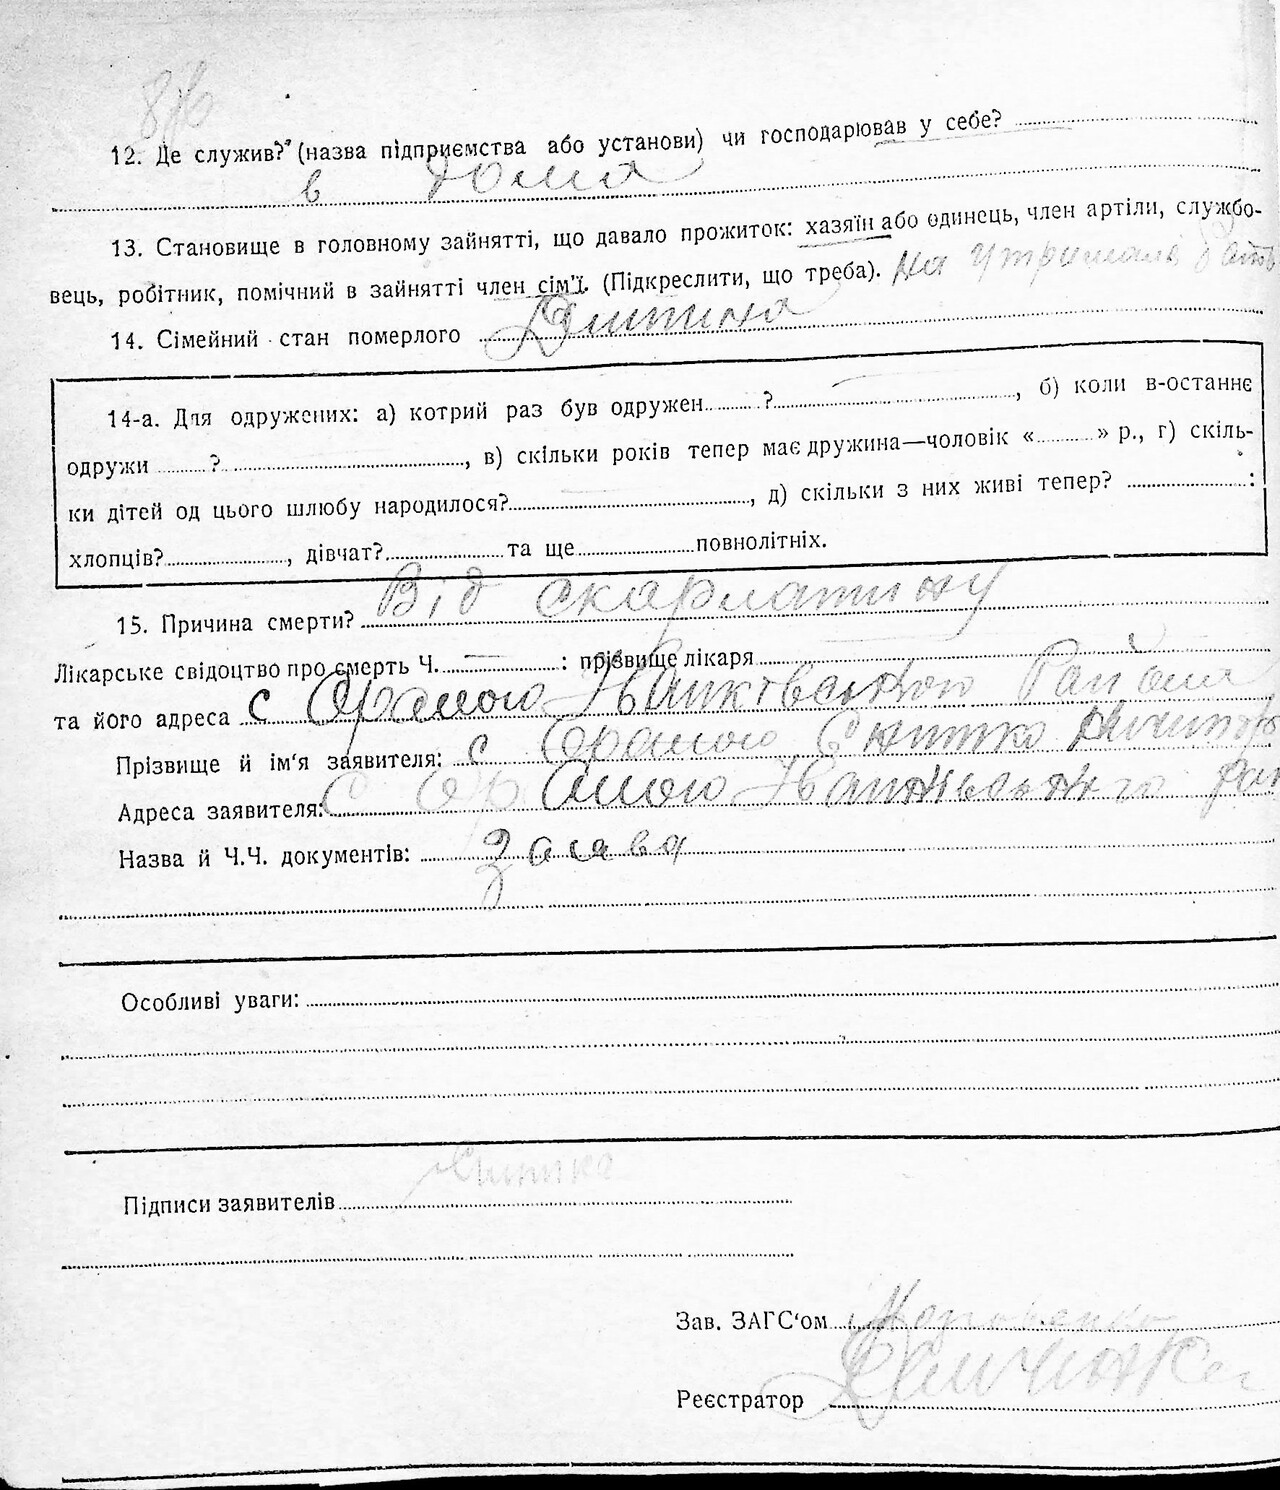 12. Де служив? (назва підприємства або установи) чи господарював у себе?
в дома
13. Становище в головному зайнятті, що давало прожиток: хазяїн або одинець, член артіли, службо-
вець, робітник, помічний в зайнятті член сім'ї. (Підкреслити, що треба). на утримані
14. Сімейний стан померлого Дитина
14-а. Для одружених: а) котрий раз був одружен ?, б) коли в-останнє
одружи ?, в) скільки років тепер має дружина—чоловік « » р., г) скіль-
ки дітей од цього шлюбу народилося?, д) скільки з них живі тепер? :
хлопців?, дівчат? та ще повнолітніх.
15. Причина смерти? Від скарлатини
Лікарське свідоцтво про смерть Ч. — : прізвище лікаря
та його адреса с Ораного Іванківського Району
Прізвище й ім'я заявителя: с Ораного
Адреса заявителя: с Ораного Іванківського рай
Назва й Ч.Ч. документів: Заява
Особливі уваги:
Підписи заявителів
Зав. ЗАГС'ом
Реєстратор